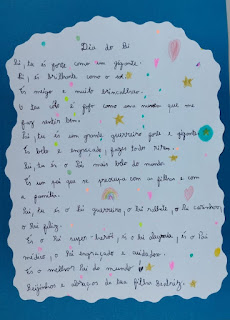 Dia do Pai
Pai, tu és forte como um gigante.
Pai, és brilhante como o sol.
És meigo e muito brincalhão.
O teu olhar é fofo como uma nuvem que me
faz sentir bem.
Pai, tu és um grande guerreiro forte e gigante.
És bolo e engraçado, fazes todos rir.
Pai, tu és o Pai mais belo do mundo.
És um pai que se preocupa com os filhos e com
a família.
Pai, tu és o Pai guerreiro, o Pai valente, o Pai carinhoso,
o Pai feliz.
És o Pai super-herói, és o Pai alegria, és o Pai
médico, o Pai engraçado e cuidador.
És o melhor Pai do mundo!
Beijinhos e abraços da tua filha Beatriz.